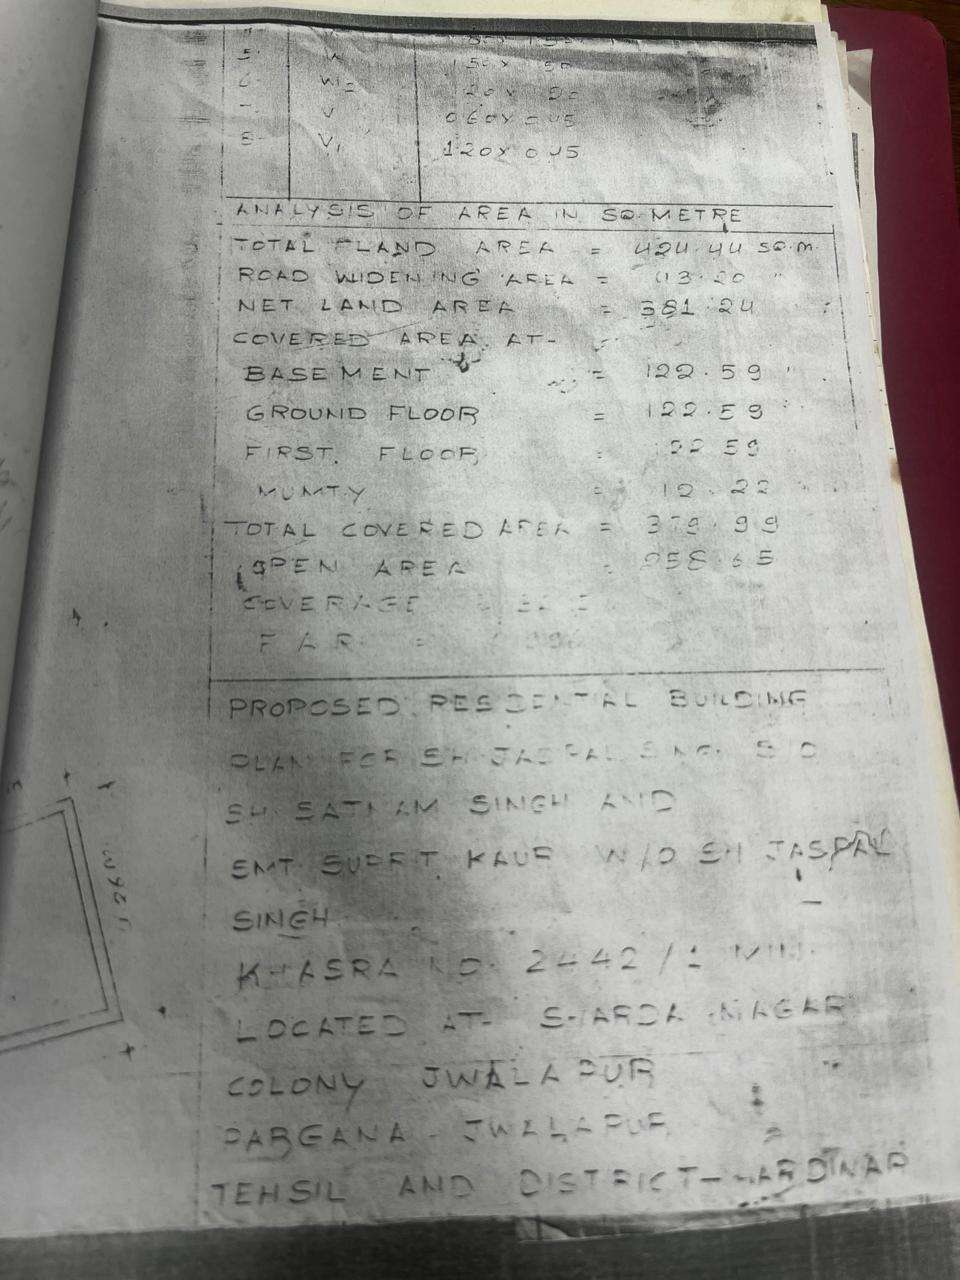 5.
150 x
6 W2
V 060x 045
8 V1 120x 045
ANALYSIS OF AREA IN SQ.METRE
TOTAL LAND AREA = 424.44 SQ.M.
ROAD WIDENING AREA = 20 "
NET LAND AREA = 381.24 "
COVERED AREA AT-
BASEMENT = 122.59 "
GROUND FLOOR = 122.59 "
FIRST FLOOR = 22 59
MUMTY = 12.22 "
TOTAL COVERED AREA = 379.99
OPEN AREA = 258.65
COVERAGE
F A R =
PROPOSED RESIDENTIAL BUILDING
PLAN FOR SH JASPAL SINGH S/O
SH SATNAM SINGH AND
SMT KAUR W/O SH JASPAL
SINGH
KHASRA NO. 2442/1 MIN.
LOCATED AT- SHARDA NAGAR
COLONY JWALAPUR
PARGANA - JWALAPUR
TEHSIL AND DISTRICT- HARDWAR